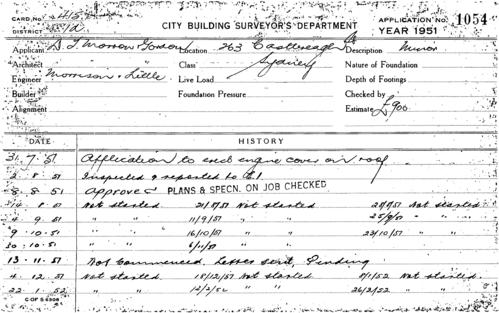 CARD No. 415
DISTRICT
CITY BUILDING SURVEYOR'S DEPARTMENT
APPLICATION No. 1054
YEAR 1951
Applicant Gordon Location 263 Castlereagh St Description Minor
Architect Class Sydney Nature of Foundation
Engineer Morrison & Little Live Load Depth of Footings
Builder Foundation Pressure Checked by
Alignment Estimate £900
DATE HISTORY
31.7.51 Application to erect engine cover on roof
2.8.51 Inspected & reported to
8.8.51 Approved PLANS & SPECN. ON JOB CHECKED
14.8.51 Not started 21/8/51 Not started 28/8/51 Not started
4.9.51 " " 11/9/51 " " 25/9/51 " "
9.10.51 " " 16/10/51 " " 23/10/51 " "
30.10.51 " " 6/11/51 " "
13.11.51 Not Commenced. Letter sent, Pending
4.12.51 Not started 18/12/51 Not started 8/1/52 Not started.
22.1.52 " " 12/2/52 " " 26/2/52 " "
C OF S 5308